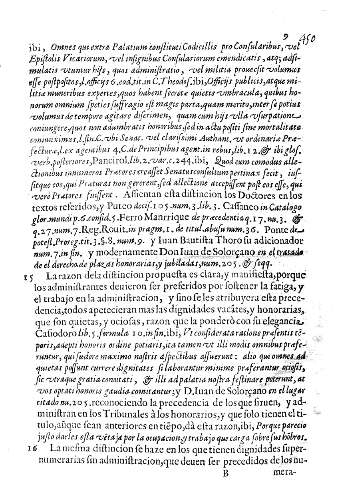 9 450
ibi, Omnes que extra Palatium constituti Codicillis pro Consularibus, vel
Epistolis Vicariorum, vel insignibus Consulariorum emendicatis, atq; adsi-
mulatis utuntur hijs, quas administratio, vel militia provexit volumus
esse postpositos, l. officijs 6. eod. tit. in C. Theodos. ibi, Officijs publicis, atque mi-
litiæ muneribus expertes, quos habent secretæ quietis umbracula, quibus ho-
norum omnium species suffragio est magis parta, quam merito, inter se potius
volumus de tempore agitare discrimen, quam cum hijs ulla usurpatione
contingere, quos non adumbratis honoribus, sed in actu positis
communimus, l. sin. C. ubi Senat. vel Clarissimi
fectura, l. ex agentibus 4. C. de Principibus agent. in rebus, lib. 12. & ibi glos.
verb. posteriores, Pancirol. lib. 2. var. c. 244. ibi, Quod cum comodus alle-
ctionibus innumeros Prætores creasset Senatusconsultum pertinax fecit, ius-
sitque eos, qui Præturas non gererent, sed allectione accepissent post eos esse, qui
verè Prætores fuissent. Assientan esta distincion los Doctores en los
textos referidos, y Puteo decis. 105. num. 3. lib. 3. Cassaneo in Catalogo
glor. mundi p. 6. consid. 5. Ferro Manrrique de præcedentia q. 17. nu. 3. &
q. 27. num. 7. Reg. Rouit. in pragm. 1. de titul. abusu num. 36. Ponte de
potest. Proreg. tit. 3. §. 8. num. 9. y Iuan Bautista Thoro su adicionador
num. 7. in fin. y modernamente Don Iuan de Solorçano en el tratado
de el derecho de plazas honorarias, y jubiladas, num. 205. & seqq.
15 La razon dela distincion propuesta es clara, y manifiesta, porque
los administrantes devieron ser preferidos por sostener la fatiga, y
el trabajo en la administracion, y sino se les atribuyera esta prece-
dencia, todos apetecieran mas las dignidades vacátes, y honorarias,
que son quietas, y ociosas, razon que la ponderò con su elegancia
Casiodoro lib. 5. formula 10. in fin. ibi, Vt consideratâ ratione præsentis tẽ-
poris, adepti honoris ordine potiaris, ita tamen ut illi modis omnibus præfe-
rantur, qui sudore maximo nostris aspectibus affuerunt: alio que omnes ad
quietas possunt currere dignitates si laborantur minimè præferantur ociosis,
sic verâque gratia comitati, & illi ad palatia nostra festinare poterunt, at
vos optati honoris gaudia comitantur: y D. Iuan de Solorçano en el lugar
citado nu. 205. reconociendo la precedencia de los que sirven, y ad-
ministran en los Tribunales à los honorarios, y que solo tienen el ti-
tulo, aũque sean anteriores en tiẽpo, dà esta razon, ibi, Porque parecio
justo darles esta vẽtaja por la ocupacion, y trabajo que carga sobre sus hõbros.
16 La mesma distincion se baze en los que tienen dignidades super-
numerarias sin administracion, que deven ser precedidos de los nu-
B mera-